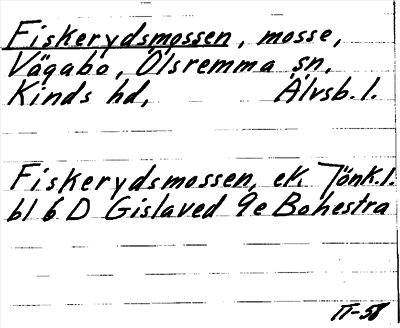 Fiskerydsmossen, mosse,
Vägabo, Ölsremma sn,
Kinds hd, Älvsb. l.
Fiskerydsmossen, ek. Jönk.l.
bl 6 D Gislaved 9e Bohestra
TT-58